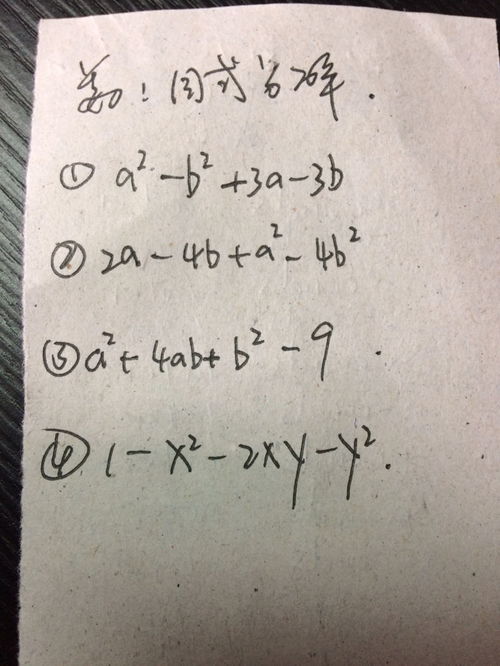 : 因式分解.
① a²-b²+3a-3b
② 2a-4b+a²-4b²
③ a²+4ab+b²-9.
④ 1-x²-2xy-y².